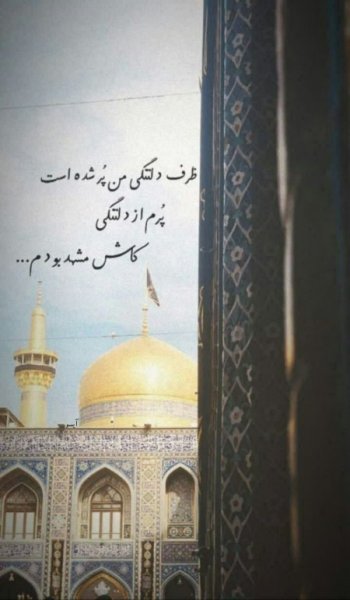 ظرف دلتنگی من پُر شده است
پُرم از دلتنگی
کاش مشهد بودم...